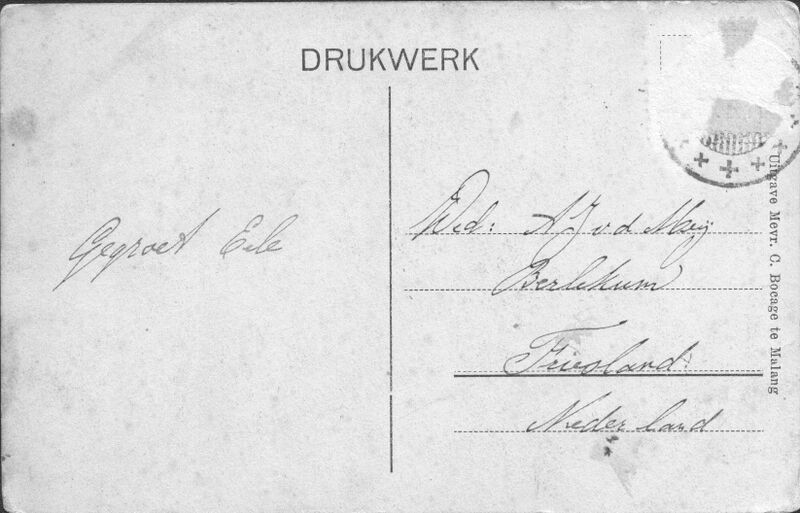 DRUKWERK
Gegroet Eele
Wed: A J v d Meij
Berlikum
Friesland
Nederland
Uitgave Mevr. C. Bocage te Malang